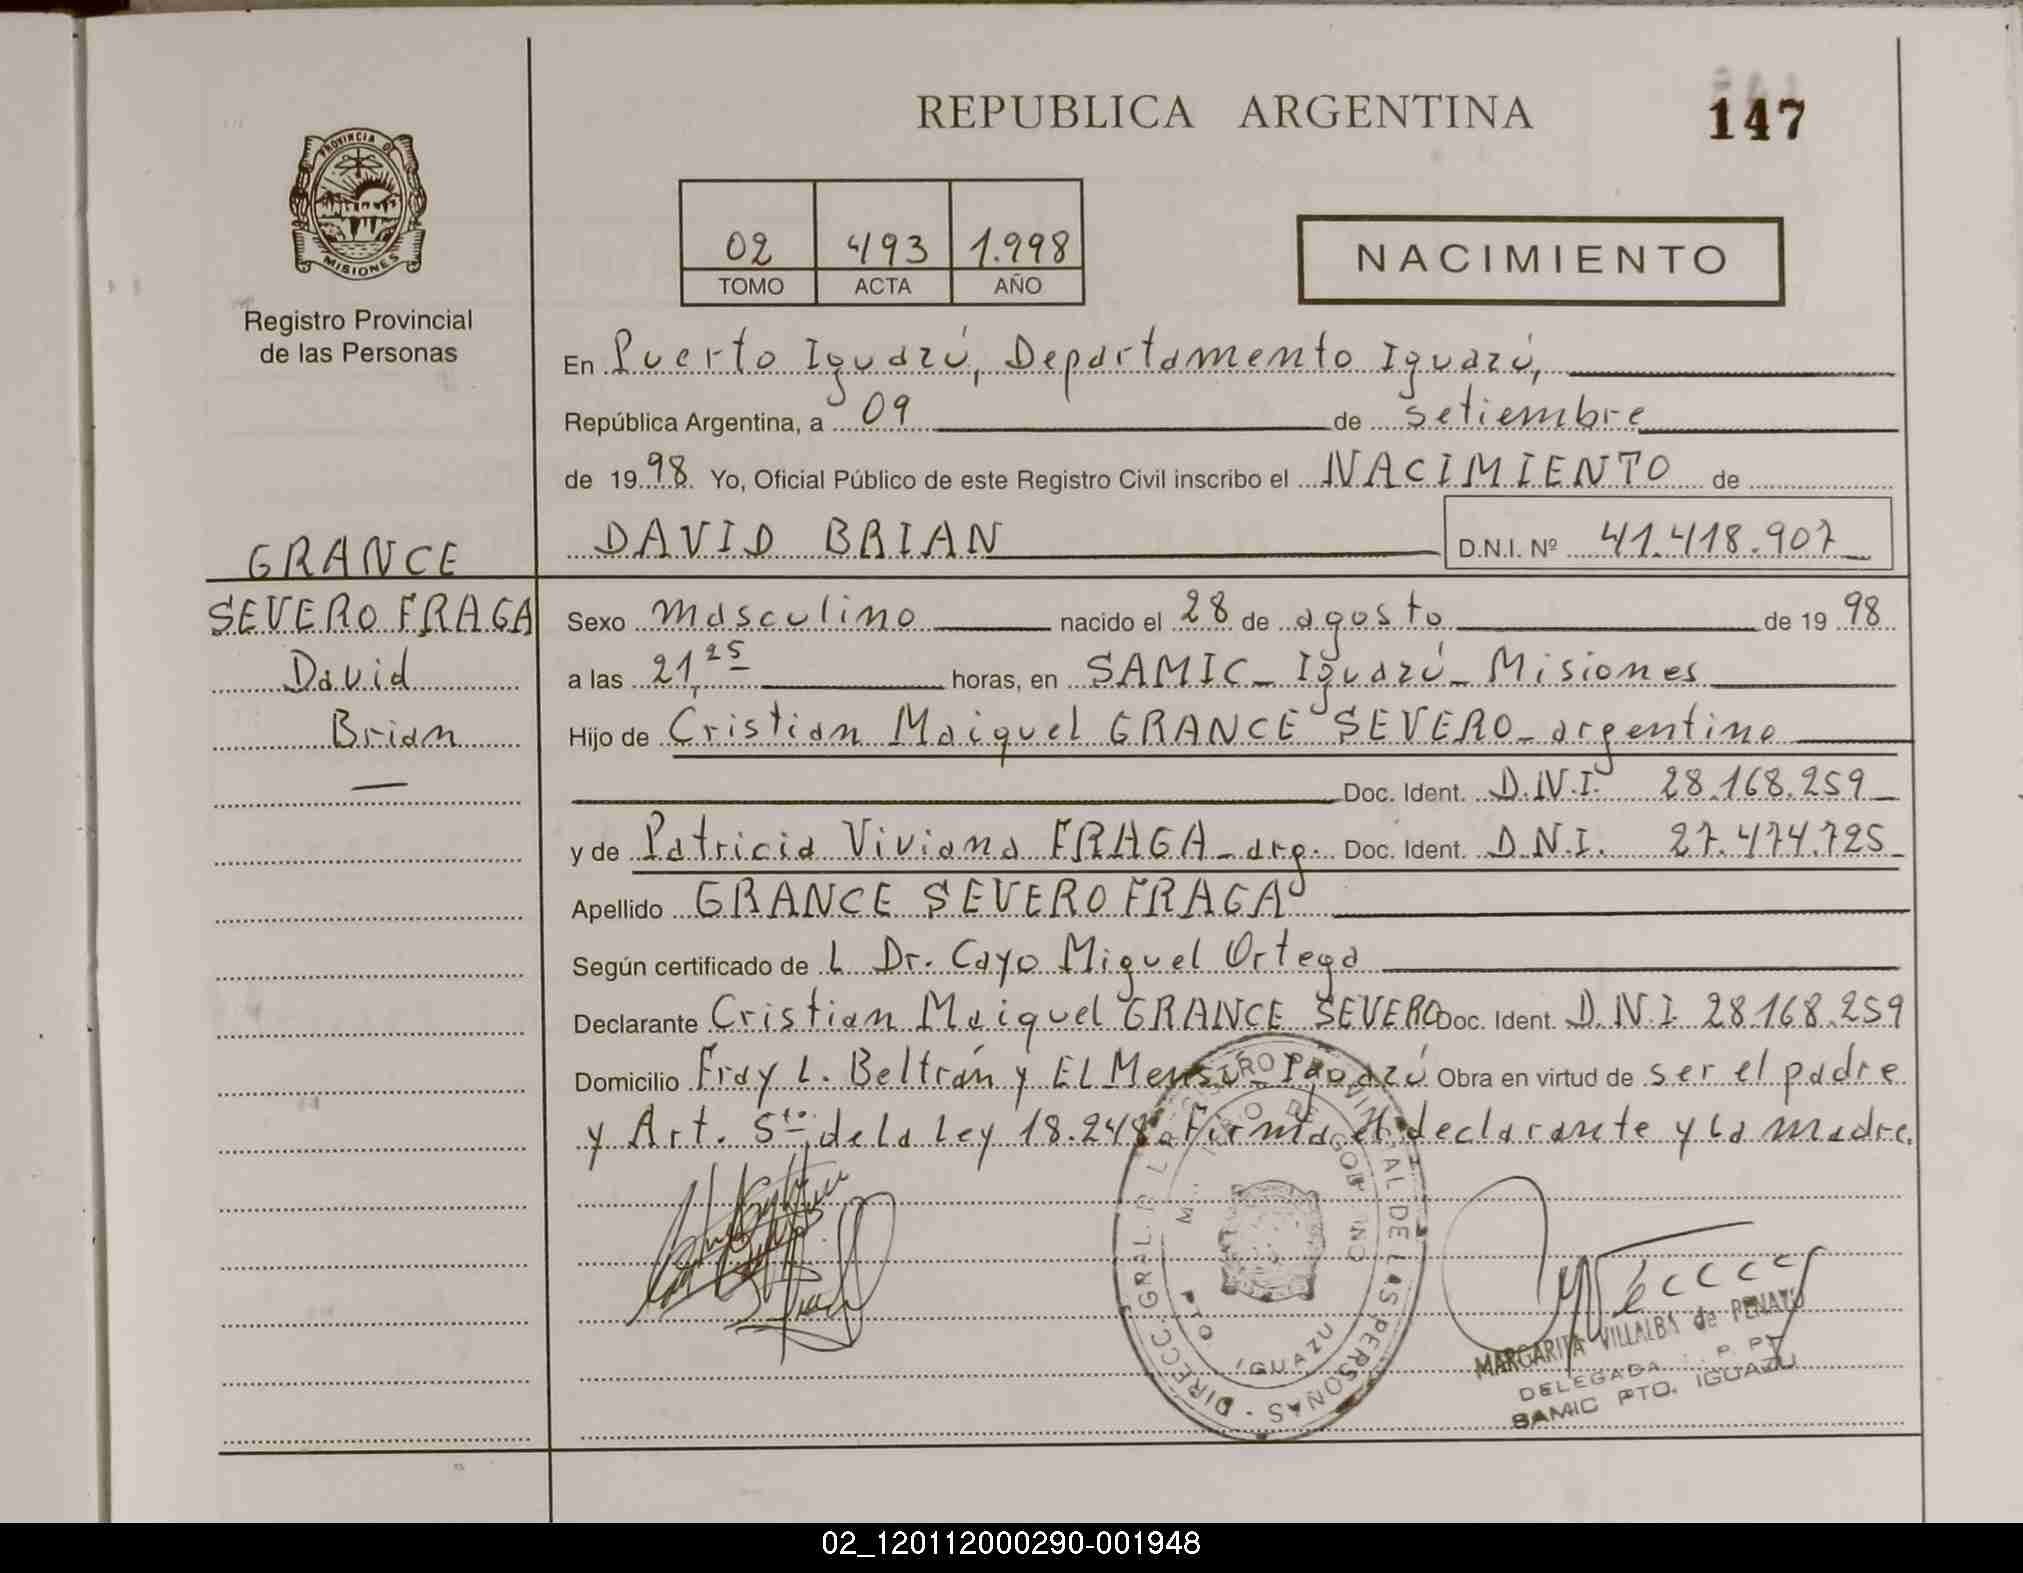 REPUBLICA ARGENTINA
147
PROVINCIA DE
MISIONES
Registro Provincial
de las Personas
02 493 1.998
TOMO ACTA AÑO
NACIMIENTO
En Puerto Iguazú, Departamento Iguazú,
República Argentina, a 09 de setiembre
de 1998. Yo, Oficial Público de este Registro Civil inscribo el NACIMIENTO de
DAVID BRIAN D.N.I. Nº 41.418.907
GRANCE
SEVERO FRAGA
David
Brian
Sexo masculino nacido el 28 de agosto de 19 98
a las 21,25 horas, en SAMIC - Iguazú - Misiones
Hijo de Cristian Maiquel GRANCE SEVERO - argentino
Doc. Ident. D.N.I. 28.168.259
y de Patricia Viviana FRAGA - arg. Doc. Ident. D.N.I. 27.474.725
Apellido GRANCE SEVERO FRAGA
Según certificado de L Dr. Cayo Miguel Ortega
Declarante Cristian Maiquel GRANCE SEVERO Doc. Ident. D.N.I. 28.168.259
Domicilio Fray L. Beltrán y El Mensú - Iguazú Obra en virtud de ser el padre
y Art. 5to. de la Ley 18.248. Firma el declarante y la madre.
DIRECC. GRAL. DEL REGISTRO PROVINCIAL DE LAS PERSONAS
PTO. IGUAZU
MARGARITA VILLALBA de PENAYO
DELEGADA R. P. P.
SAMIC PTO. IGUAZU
02_120112000290-001948